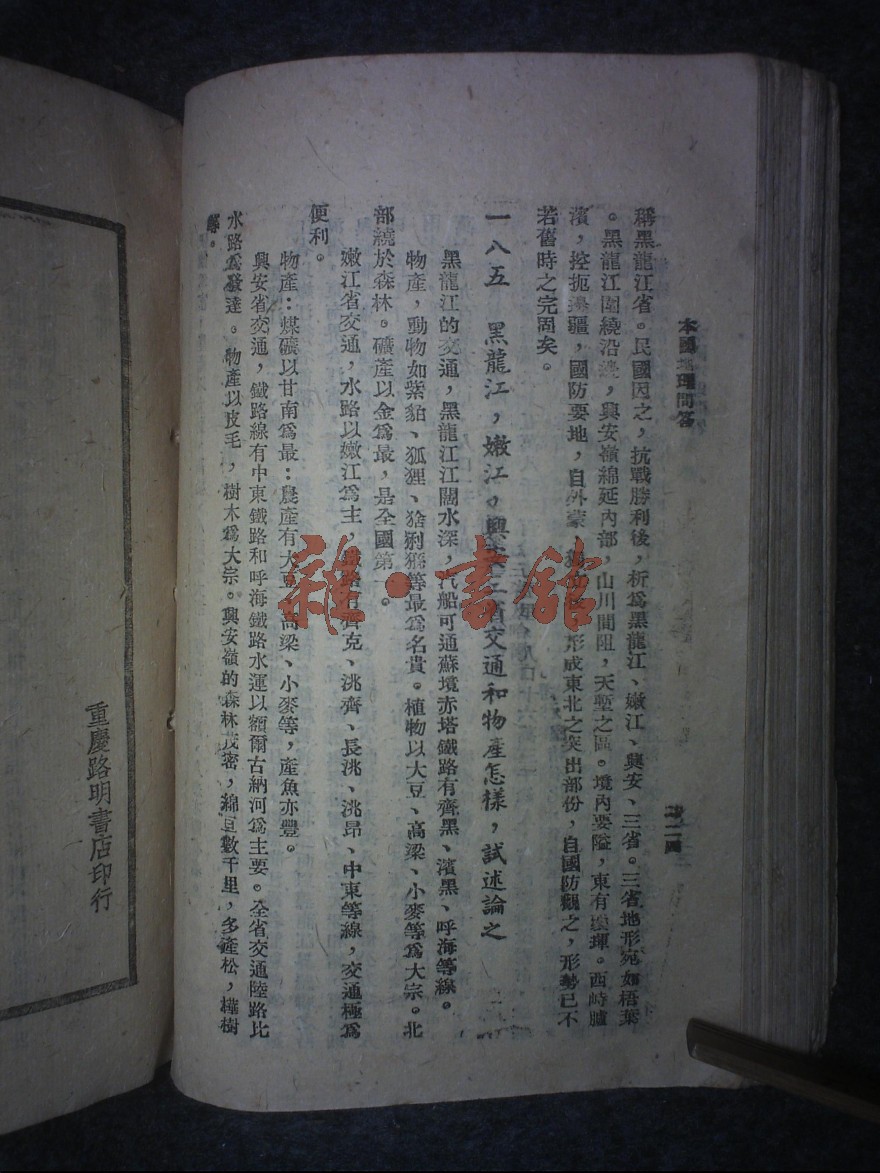 本國地理問答
稱黑龍江省。民國因之,抗戰勝利後,析為黑龍江、嫩江、興安、三省。三省地形宛如梧葉
。黑龍江圍繞沿邊,興安嶺綿延內部,山川間阻,天塹之區。境內要隘,東有璦琿。西峙臚
濱,控扼邊疆,國防要地,自外蒙獨立後,形成東北之突出部份,自國防觀之,形勢已不
若舊時之完固矣。
一八五 黑龍江,嫩江,興安三省交通和物產怎樣,試述論之
黑龍江的交通,黑龍江江闊水深,汽船可通蘇境赤塔鐵路有齊黑、濱黑、呼海等線。
物產,動物如紫貂、狐狸、猞猁猻等最為名貴。植物以大豆、高梁、小麥等為大宗。北
部繞於森林。礦產以金為最,是全國第一。
嫩江省交通,水路以嫩江為主,鐵路有齊克、洮齊、長洮、洮昂、中東等線,交通極為
便利。
物產:煤礦以甘南為最:農產有大豆、高梁、小麥等,產魚亦豐。
興安省交通,鐵路線有中東鐵路和呼海鐵路水運以額爾古納河為主要。全省交通陸路比
水路為發達。物產以皮毛,樹木為大宗。興安嶺的森林茂密,綿亘數千里,多產松,樺樹
等。
重慶路明書店印行
雜·書館